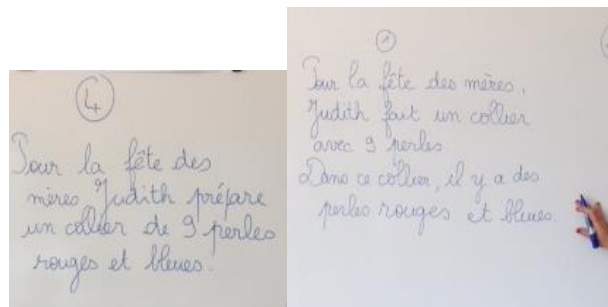 4
Pour la fête des
mères Judith prépare
un collier de 9 perles
rouges et bleues.
1
Pour la fête des mères,
Judith fait un collier
avec 9 perles
Dans ce collier, il y a des
perles rouges et bleues.